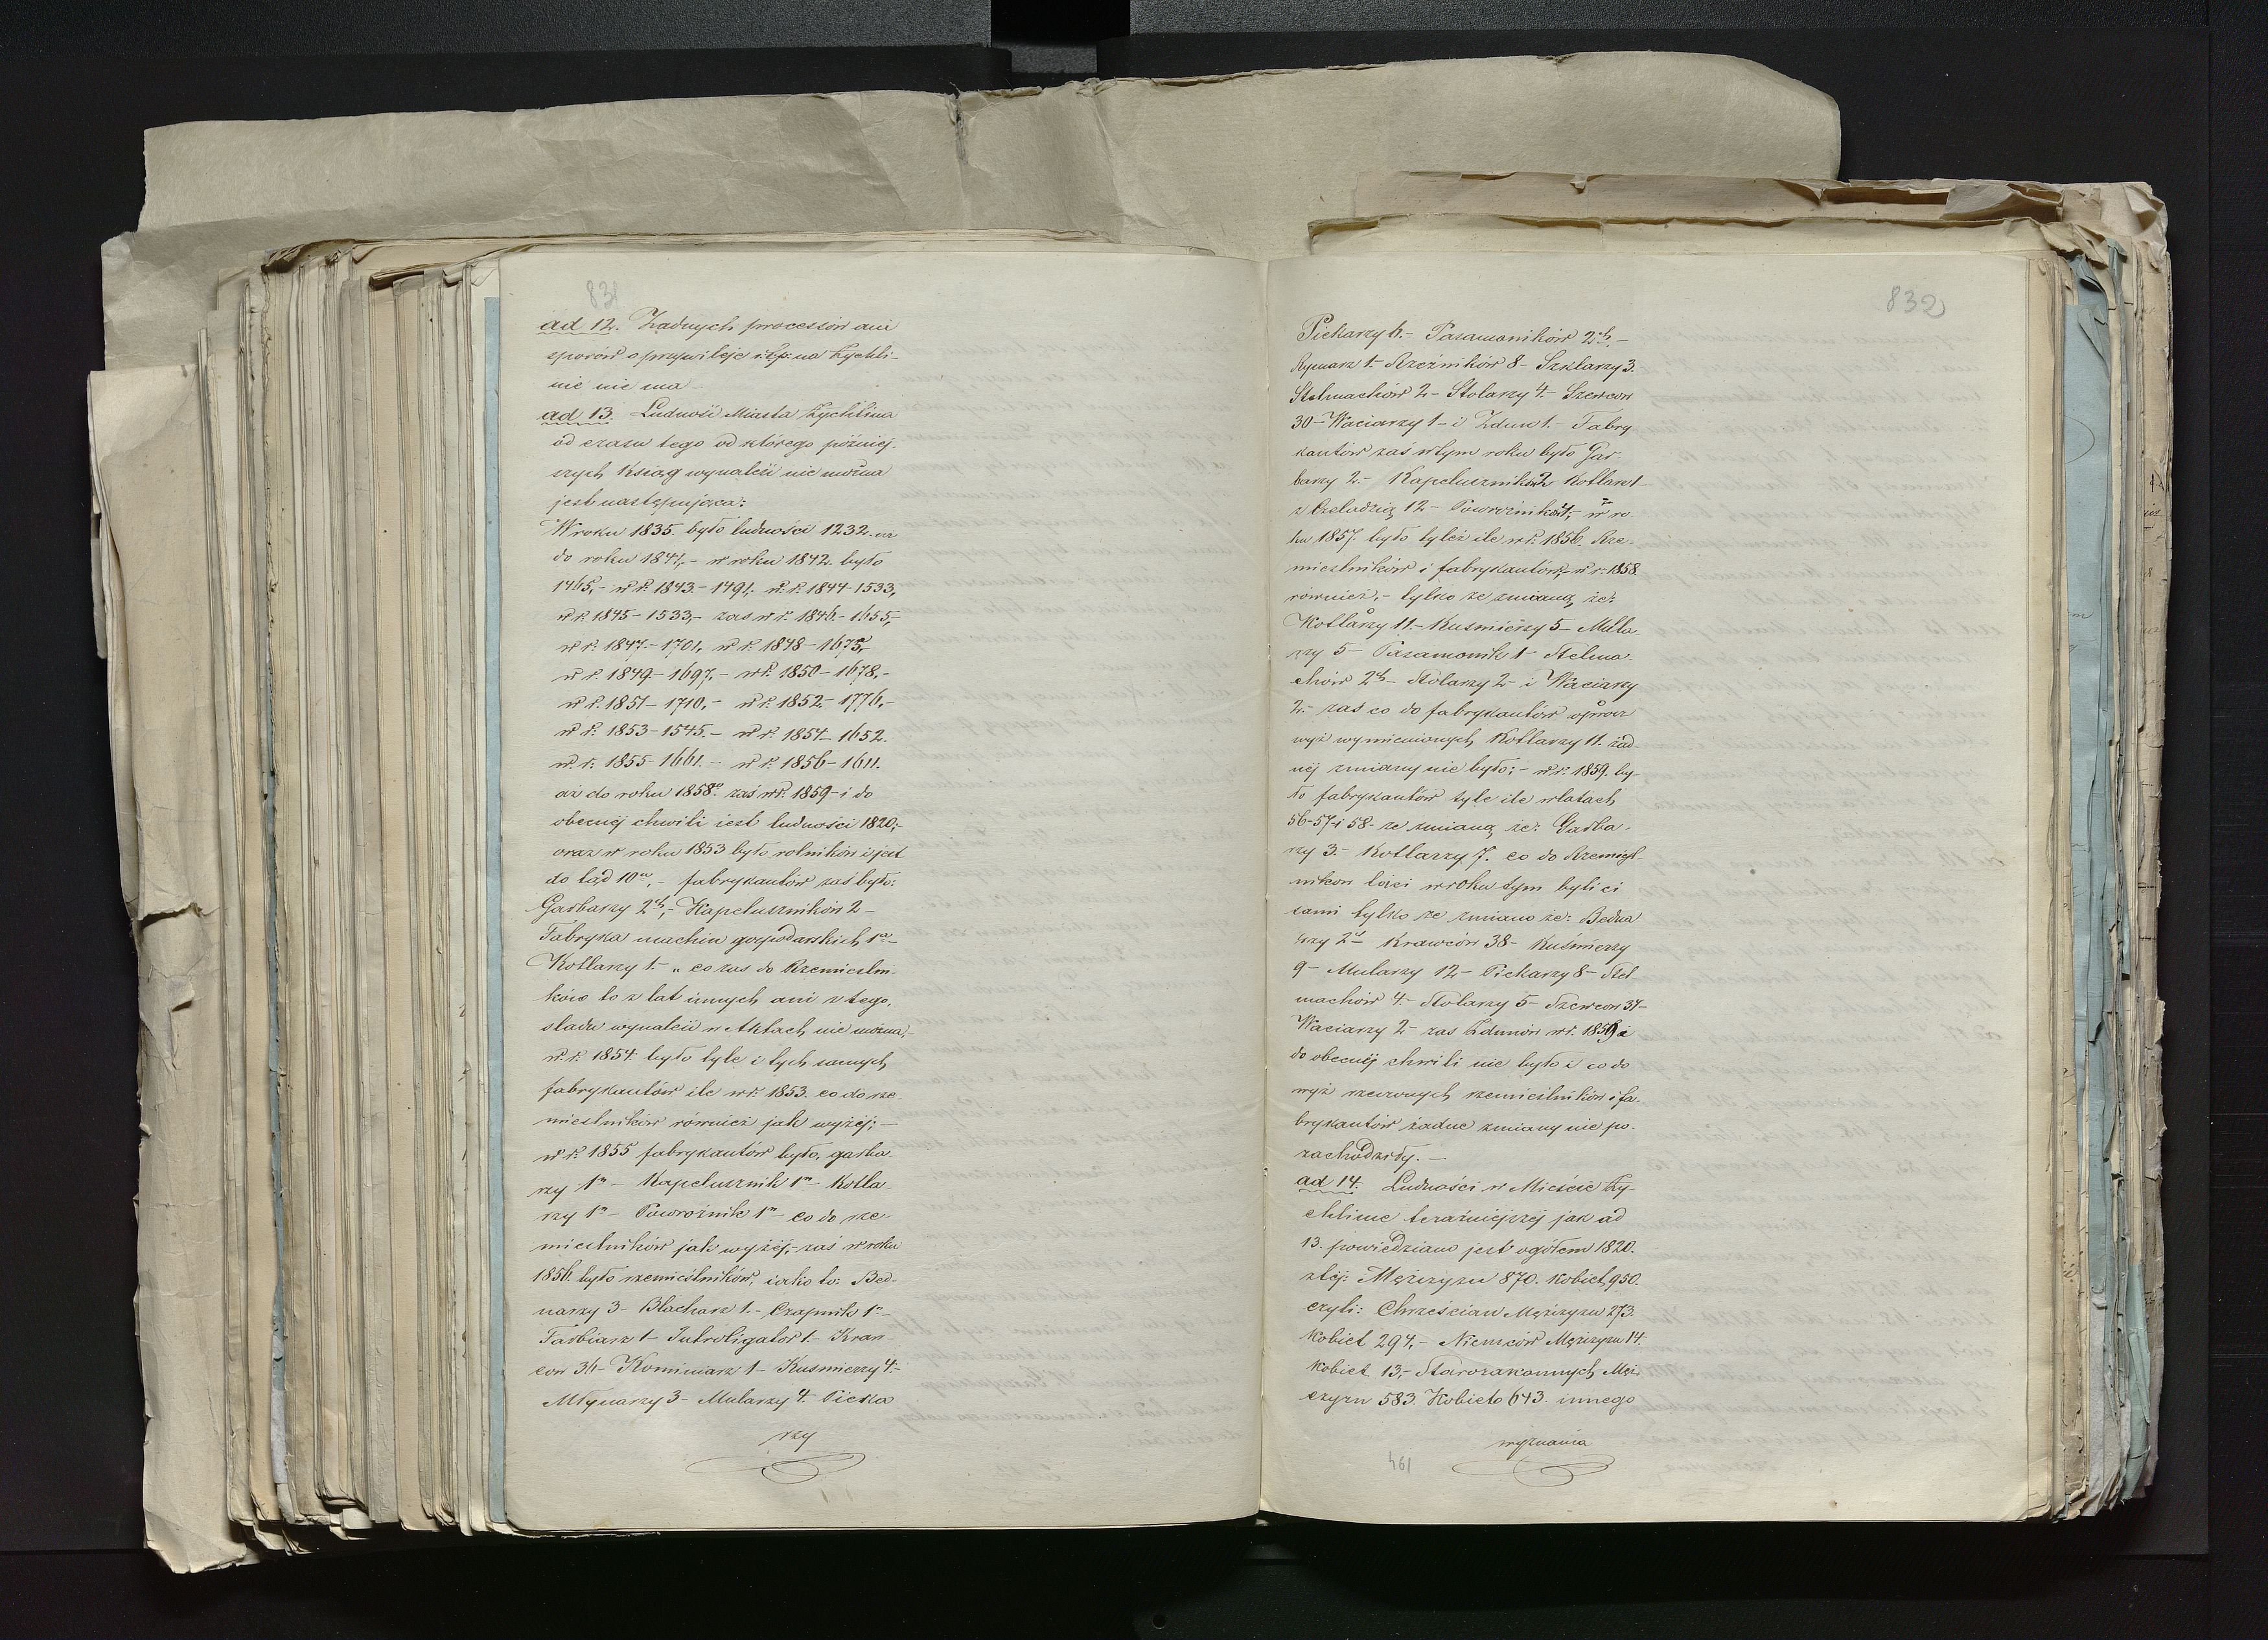 831
ad 12. Żadnych processów ani
sporów o przywileje i t.p. na Żychli-
nie nie ma
ad 13. Ludność Miasta Żychlina
od czasu tego od którego późniéj-
szych Ksiąg wynaleść nie można
jest następująca:
W roku 1835. było ludności 1232. aż
do roku 1841,- w roku 1842. było
1465,- w r. 1843.- 1491,- w. r. 1844-1533,
w r. 1845-1533,- zas w r. 1846.- 1655,-
w r. 1847.- 1701, w r. 1848-1675,-
w r. 1849-1697,- w r. 1850-1678,-
w r. 1851-1710,- w r. 1852.- 1776,-
w r. 1853-1545.- w r. 1854-1652.
w. r. 1855-1661.- w r. 1856-1611.
aż do roku 1858º. zaś w r. 1859- i do
obecnéj chwili iest ludności 1820;-
oraz w roku 1853 było rolników i jest
do tąd 10ᵘ,- fabrykantów zaś było:
Garbarzy 2ch,- Kapeluszników 2-
Fabryka machin gospodarskich 1ª-
Kotlarzy 1.- „ co zas do Rzemieślni-
ków to z lat innych ani z tego,
sladu wynaleść w Aktach nie można,-
w. r. 1854. było tyle i tych samych
fabrykantów ile w r. 1853. co do rze-
mieslników również jak wyżéj;-
w r. 1855 fabrykantów było, garba-
rzy 1ⁿ- Kapelusznik 1ⁿ- Kotla-
rzy 1ⁿ- Powroźnik 1ⁿ- co do rze-
mieslników jak wyżéj,- zaś w roku
1856. było rzemieślników, iako to: Bed-
narzy 3- Blacharz 1.- Czapnik 1ⁿ-
Farbiarz 1- Introligator 1.- Kraw-
ców 36- Kominiarz 1- Kusmierzy 4.-
Młynarzy 3- Mularzy 4. Pieka
rzy
832
Piekarzy 6.- Pasamoników 2ch.-
Rymarz 1.- Rzeźników 8- Szklarzy 3.
Stelmachów 2- Stolarzy 4.- Szewcow
30- Waciarzy 1- i Zdun 1.- Fabry
kantów zaś w tym roku było Gar-
barzy 2.- Kapeluszników 2 Kotlarz 1-
z Czeladzią 12- Powroźników 1,- w ro
ku 1857. było tyleż ile w r. 1856. Rze-
mieslników i fabrykantów,- w r. 1858.
również,- tylko ze zmianą że:
Kotlarzy 11.- Kusmierzy 5- Mula
rzy 5- Pasamonik 1- Stelma-
chów 2ch- Stolarzy 2- i Waciarzy
2.- zaś co do fabrykantów oprócz
wyż wymienionych Kotlarzy 11. żad-
néj zmiany nie było;- w r. 1859. by-
ło fabrykantów tyle ile w latach
56-57- i 58- ze zmianą że: Garba-
rzy 3.- Kotlarzy 7. co do Rzemieśl-
ników tości w roku tym byli ci
sami tylko ze zmiano że: Bedna
rzy 2ch Krawców 38- Kuśmierzy
9- Mularzy 12- Piekarzy 8- Stel-
machów 4.- Stolarzy 5- Szewcow 37-
Waciarzy 2- zas Zdunów w r. 1859 i
do obecnéj chwili nie było i co do
wyż rzeczonych rzemieślników i fa-
brykantów żadne zmiany nie po-
zachodziły.-
ad 14. Ludności w Mieście Ży-
chlinie teraźniejszéj jak ad
13. powiedziano jest ogółem 1820.
z téj: Mężczyzn 870. kobiet 950.
czyli: Chrześcian Mężczyzn 273.
kobiet 294,- Niemców Mężczyzn 14.
kobiet 13,- Starozakonnych Męż-
czyzn 583. Kobiet 643. innego
wyznania
461